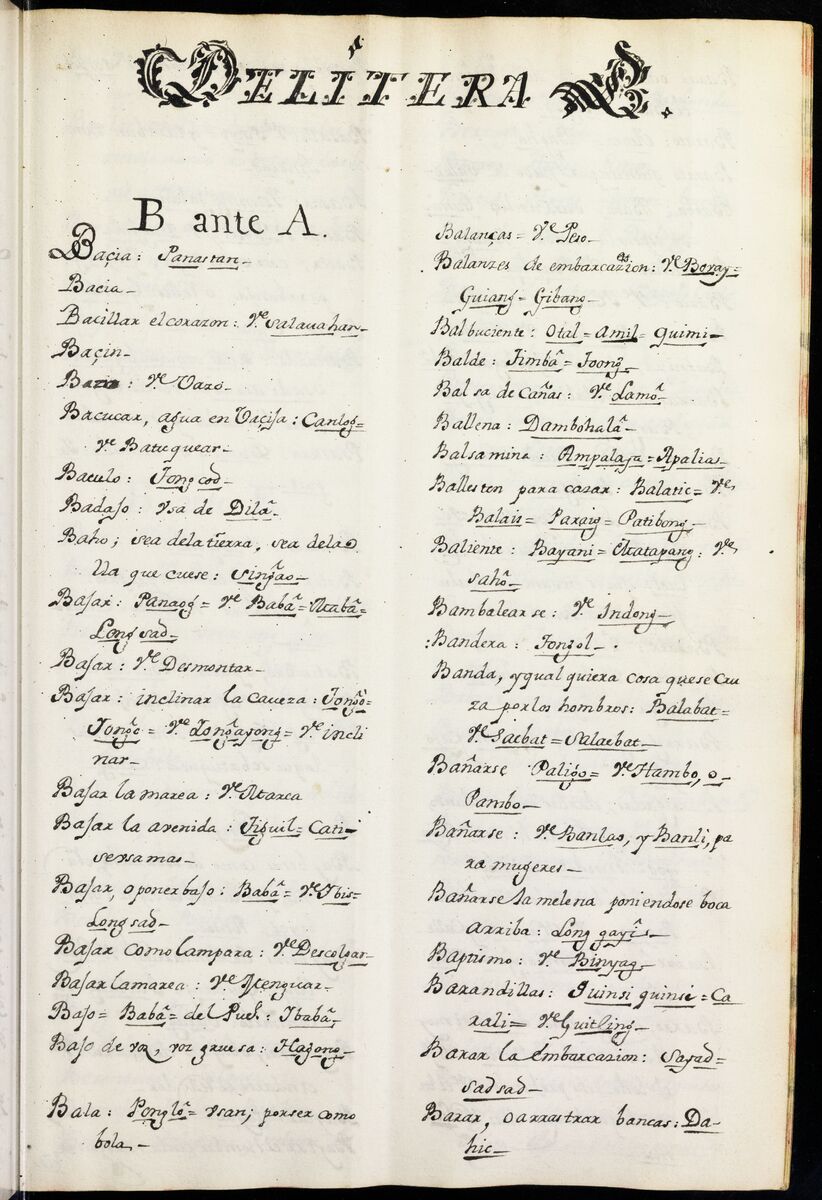 DE LÍTERA B.
B ante A.
Baçia: Panastan_
Bacia_
Bacillar el corazon: Vᵉ Salauahan_
Baçin_
Vᵉ Vazo_
Bacucar, agua en Vaçija: Canlog=
Vᵉ Batuquear_
Baculo: Tongcod_
Badajo: Vsa de Dilâ.
Baho; sea de la tierra, sea de la O
lla que cuese: Singao_
Bajar: Panaog= Vᵉ Babâ=
Longsad_
Bajar: Vᵉ Desmontar_
Bajar: inclinar la caveza: Tongô=
Vᵉ Longayong= Vᵉ incli
nar_
Bajar la marea: Vᵉ
Bajar la avenida: Tiguil= Cati=
sersamas_
Bajar, o poner bajo: Babâ= Vᵉ Ibis=
Longsad_
Bajar como lampara: Vᵉ Descolgar_
Bajar la marea: Vᵉ Menguar_
Bajo= Babâ= del Pueb.: Ibabâ_
Bajo de voz, voz gruesa: Hagong_
Bala: Ponglô= Vsan; por ser como
bola_
Balanças= Vᵉ Peso_
Balanzes de embarcazion: Vᵉ Boray=
Guiang= Gibang_
Balbuciente: Otal= Amil= Quimi_
Balde: Timbâ= Toong_
Balsa de Cañas: Vᵉ Lamô_
Ballena: Dambohalâ_
Balsamina: Ampalaya= Apalias_
Balleston para cazar: Balatic= Vᵉ
Balais= Paraig= Patibong_
Baliente: Bayani= Matapang: Vᵉ
sahô_
Bambalearse: Vᵉ Indong_
Bandera: Tongol_
Banda, y qual quiera cosa que se cru
za por los hombros: Balabat=
Vᵉ Sacbat= Salacbat_
Bañarse Paligo= Vᵉ Hambo, o_
Pambo_
Bañarse: Vᵉ Banlas, y Banli, pa
ra mugeres_
Bañarse la melena poniendose boca
arriba: Long gayî_
Baptismo: Vᵉ Binyag_
Barandillas: Guinsi guinsi= Ca
rali= Vᵉ Guitling_
Barar la embarcazion: Sayad=
Sadsad_
Barar, o arrastrar bancas: Da-
hic_